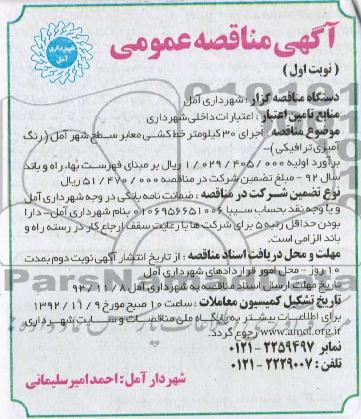 آگهی مناقصه عمومی
شهرداری
آمل
( نوبت اول )
دستگاه مناقصه گزار : شهرداری آمل
منابع تامین اعتبار : اعتبارات داخلی شهرداری
موضوع مناقصه : اجرای ۳۰ کیلومتر خط کشی معابر سطح شهر آمل (رنگ
آمیزی ترافیکی )-
برآورد اولیه ۱/۰۲۹/۴۰۵/۰۰۰ ریال بر مبنای فهرست بها، راه و باند
سال ۹۲ - مبلغ تضمین شرکت در مناقصه ۵۱/۴۷۰/۰۰۰ ریال
نوع تضمین شرکت در مناقصه : ضمانت نامه بانکی در وجه شهرداری آمل
و یا وجه نقد بحساب سیبا ۰۱۰۶۹۵۶۶۵۱۰۰۶ بنام شهرداری آمل - دارا
بودن حداقل رتبه ۵ برای شرکت ها با رعایت سقف ارجاع کار در رسته راه و
باند الزامی است.
مهلت و محل دریافت اسناد مناقصه : از تاریخ انتشار آگهی نوبت دوم بمدت
۱۰ روز - محل امور قراردادهای شهرداری آمل
تاریخ مهلت ارسال اسناد مناقصه به شهرداری آمل ۹۲/۱۱/۸
تاریخ تشکیل کمیسیون معاملات : ساعت ۱۰ صبح مورخ ۱۳۹۲/۱۱/۹
برای اطلاعات بیشتر به پایگاه ملی مناقصات و سایت شهرداری
www.amol.gr.ir رجوع گردد.
نمابر ۲۲۵۹۴۹۷-۰۱۲۱
تلفن: ۲۲۲۹۰۰۷-۰۱۲۱
شهردار آمل : احمد امیر سلیمانی